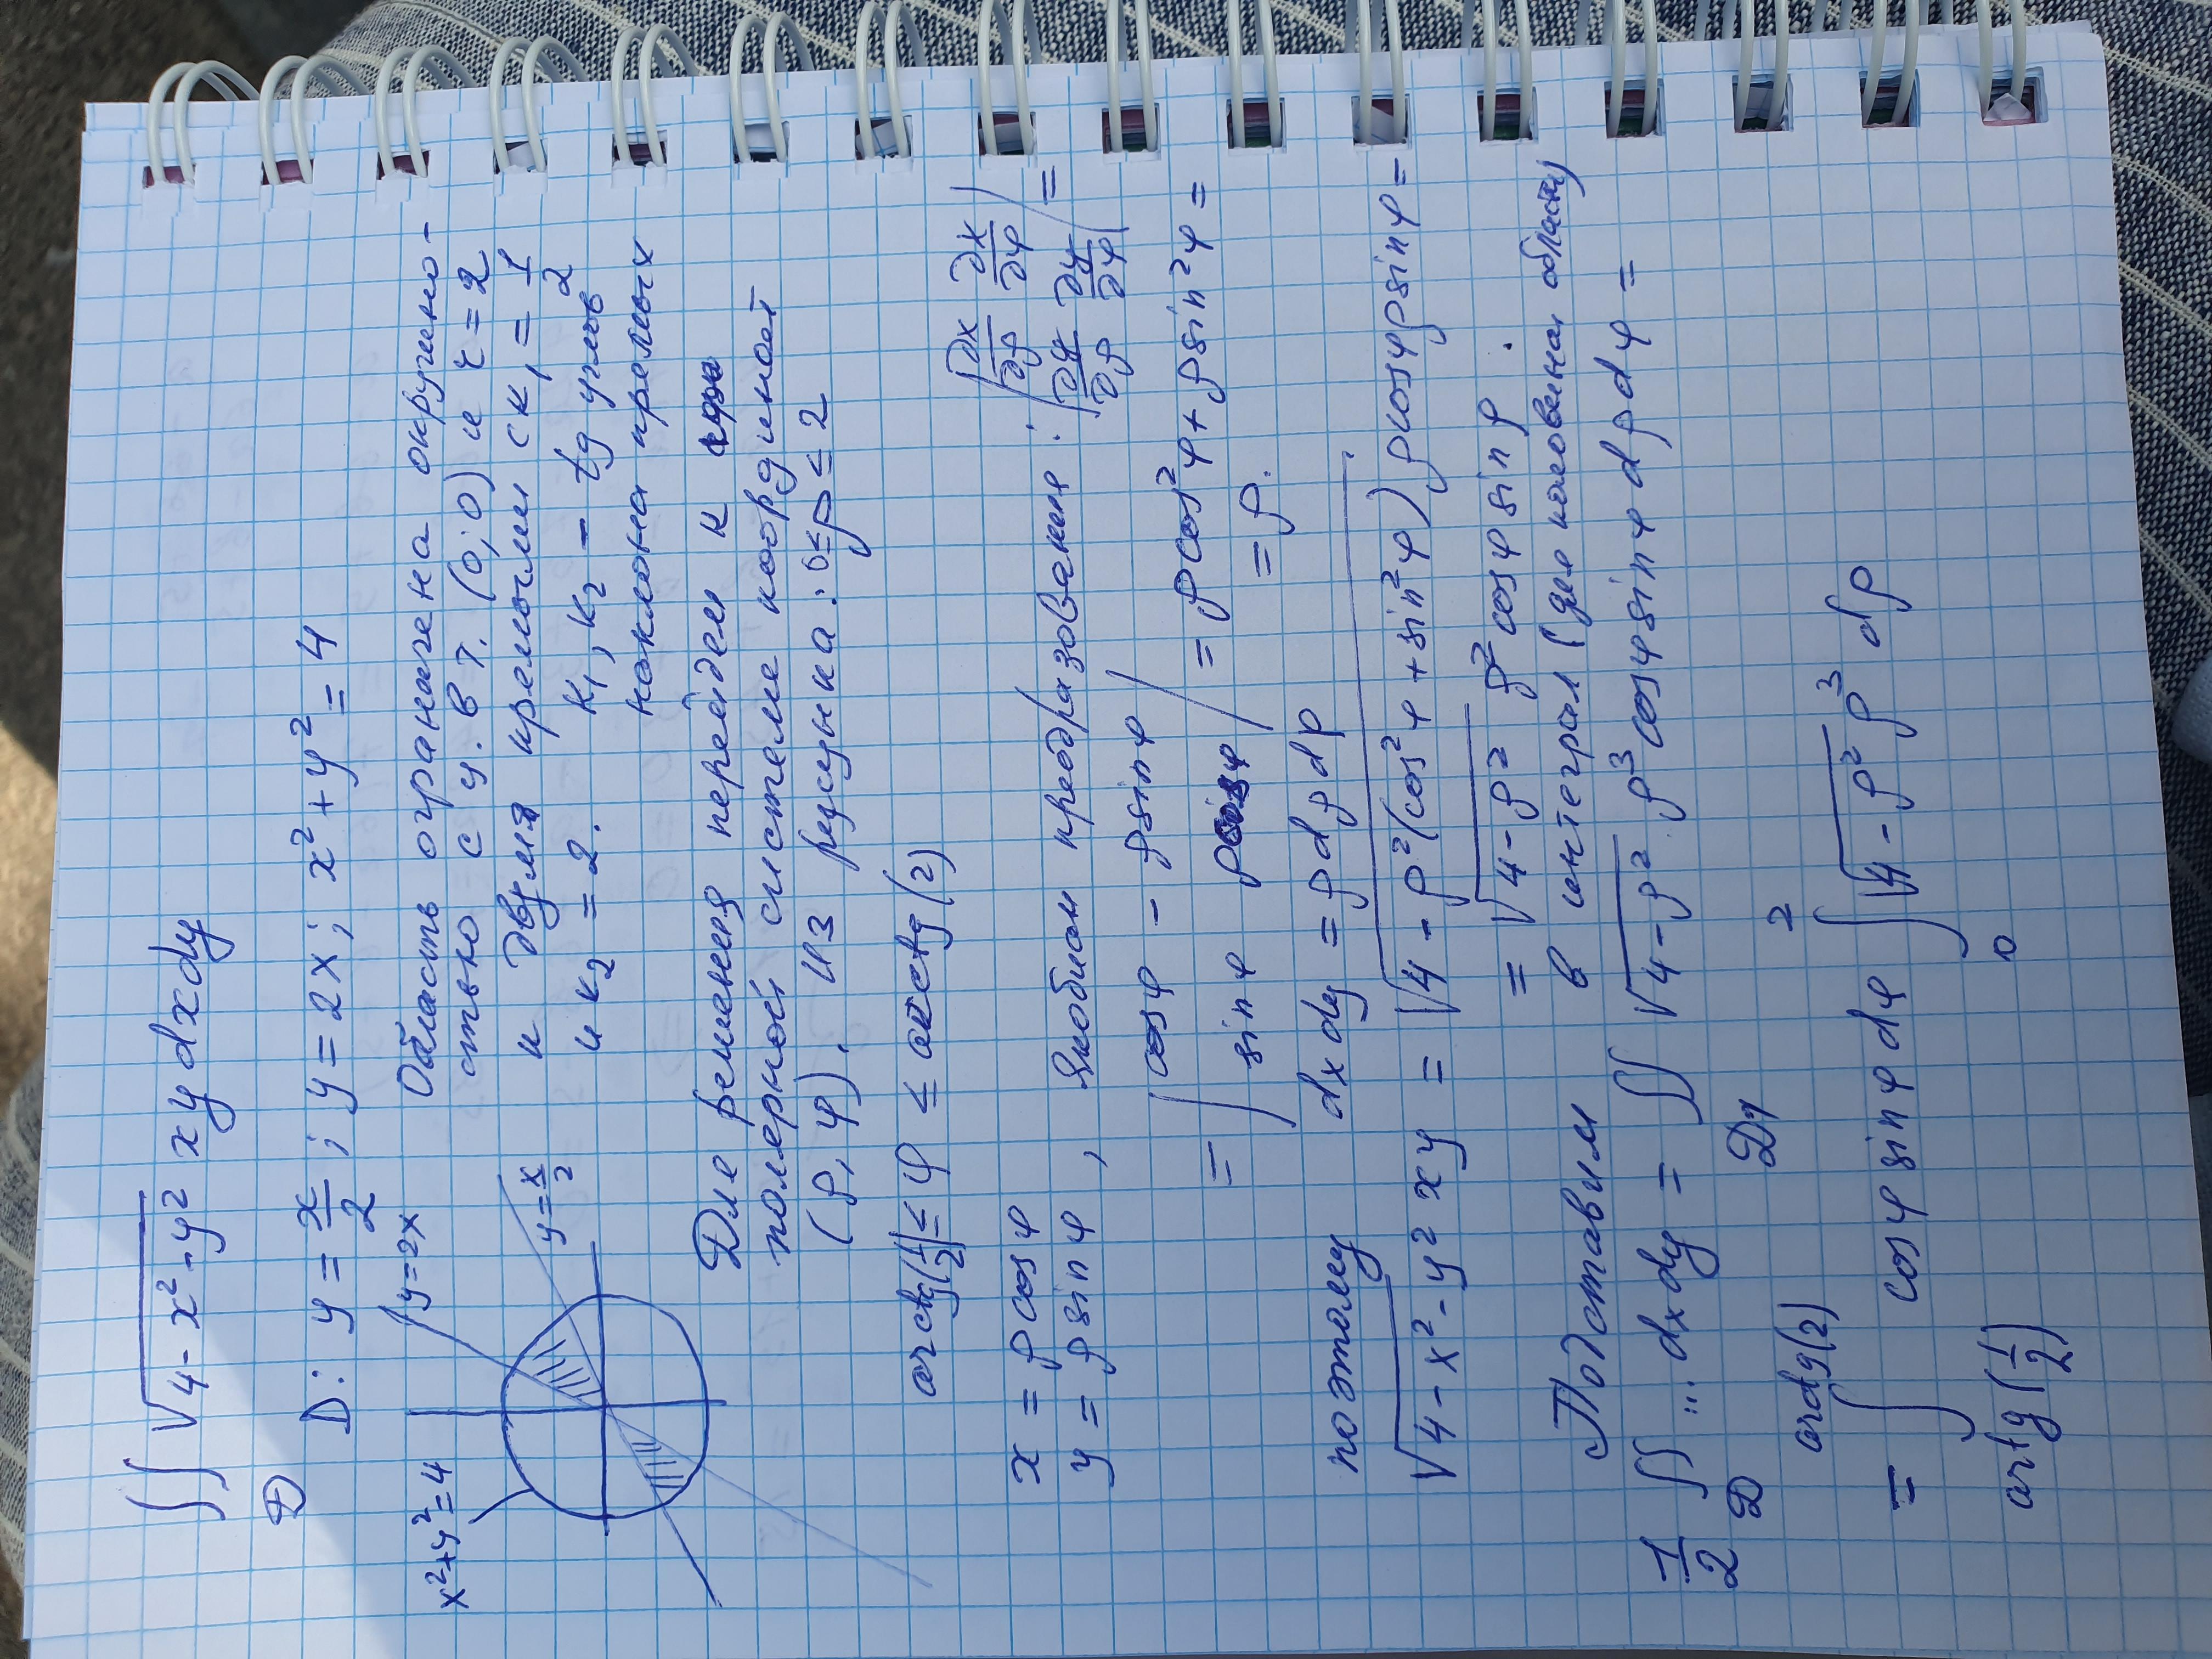 ∬ √(4 - x² - y²) xy dx dy
D
D: y = x/2; y = 2x; x² + y² = 4
x²+y²=4
y=2x
y=x/2
Область ограначена окружно-
стью с ц. в т. (0; 0) и r = 2
и двумя прямыми с k₁ = 1/2
и k₂ = 2. k₁, k₂ - tg углов
наклона прямых
Для решения перейдем к
полярной системе координат
(ρ, φ). Из рисунка: 0 ≤ ρ ≤ 2
arctg(1/2) ≤ φ ≤ arctg(2)
x = ρ cos φ
y = ρ sin φ , Якобиан преобразования: |∂x/∂ρ ∂x/∂φ ∂y/∂ρ ∂y/∂φ| =
= |cos φ - ρ sin φ
sin φ ρ cos φ| = ρ cos² φ + ρ sin² φ =
= ρ.
dx dy = ρ dρ dφ
поэтому
√(4 - x² - y²) xy = √(4 - ρ²(cos² φ + sin² φ)) ρ cos φ ρ sin φ =
= √(4 - ρ²) ρ² cos φ sin φ.
Подставим в интеграл (для половины области)
1/2 ∬ ... dx dy = ∬ √(4 - ρ²) ρ³ cos φ sin φ dρ dφ =
D
arctg(2) 2
= ∫ cos φ sin φ dφ ∫ √(4 - ρ²) ρ³ dρ
artg(1/2) 0